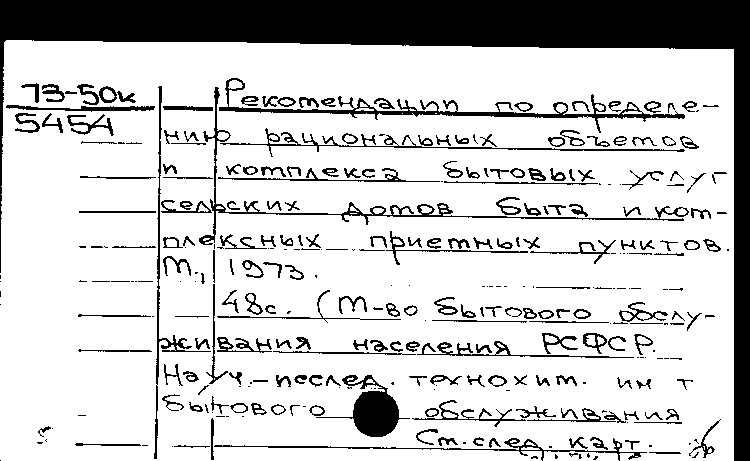 73-50к
5454
Рекомендации по определе-
нию рациональных объемов
и комплекса бытовых услуг
сельских домов быта и ком-
плексных приемных пунктов.
М., 1973.
48с. (М-во бытового обслу-
живания населения РСФСР.
Науч.-исслед. технохим. ин т
бытового обслуживания
См. след. карт.